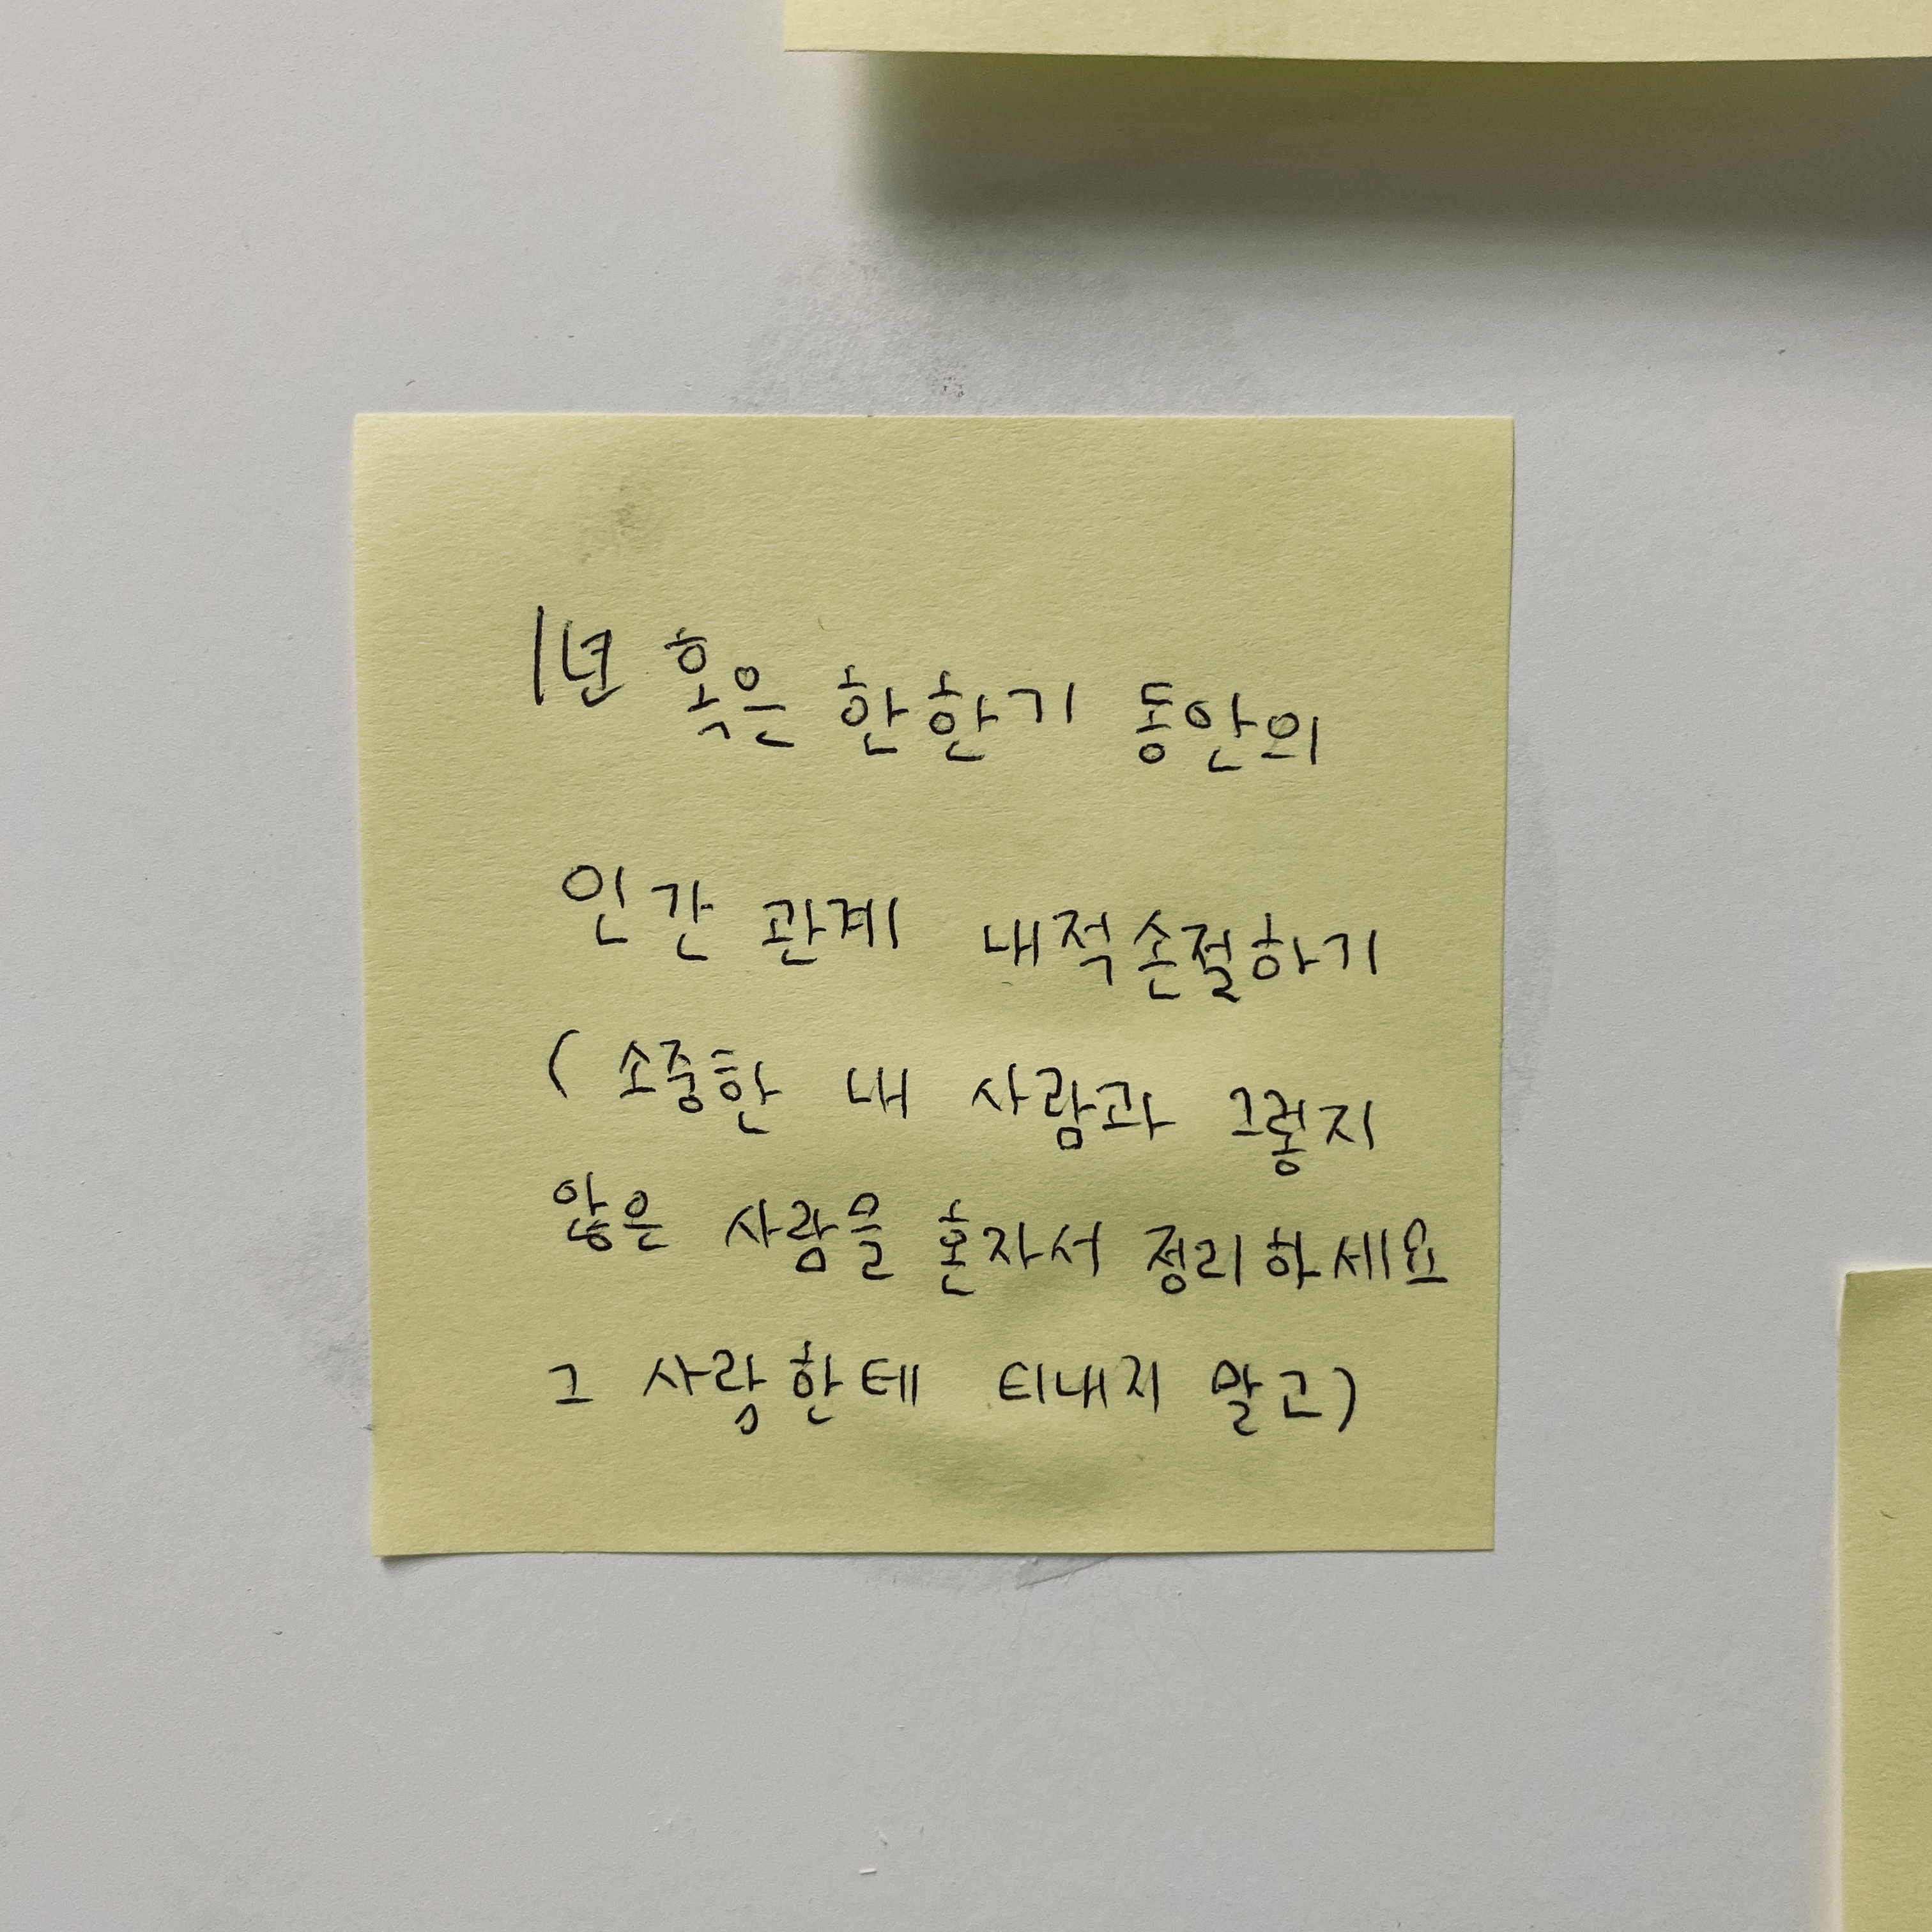 1년 혹은 한한기 동안의
인간 관계 내적손절하기
( 소중한 내 사람과 그렇지
않은 사람을 혼자서 정리하세요
그 사람한테 티내지 말고)